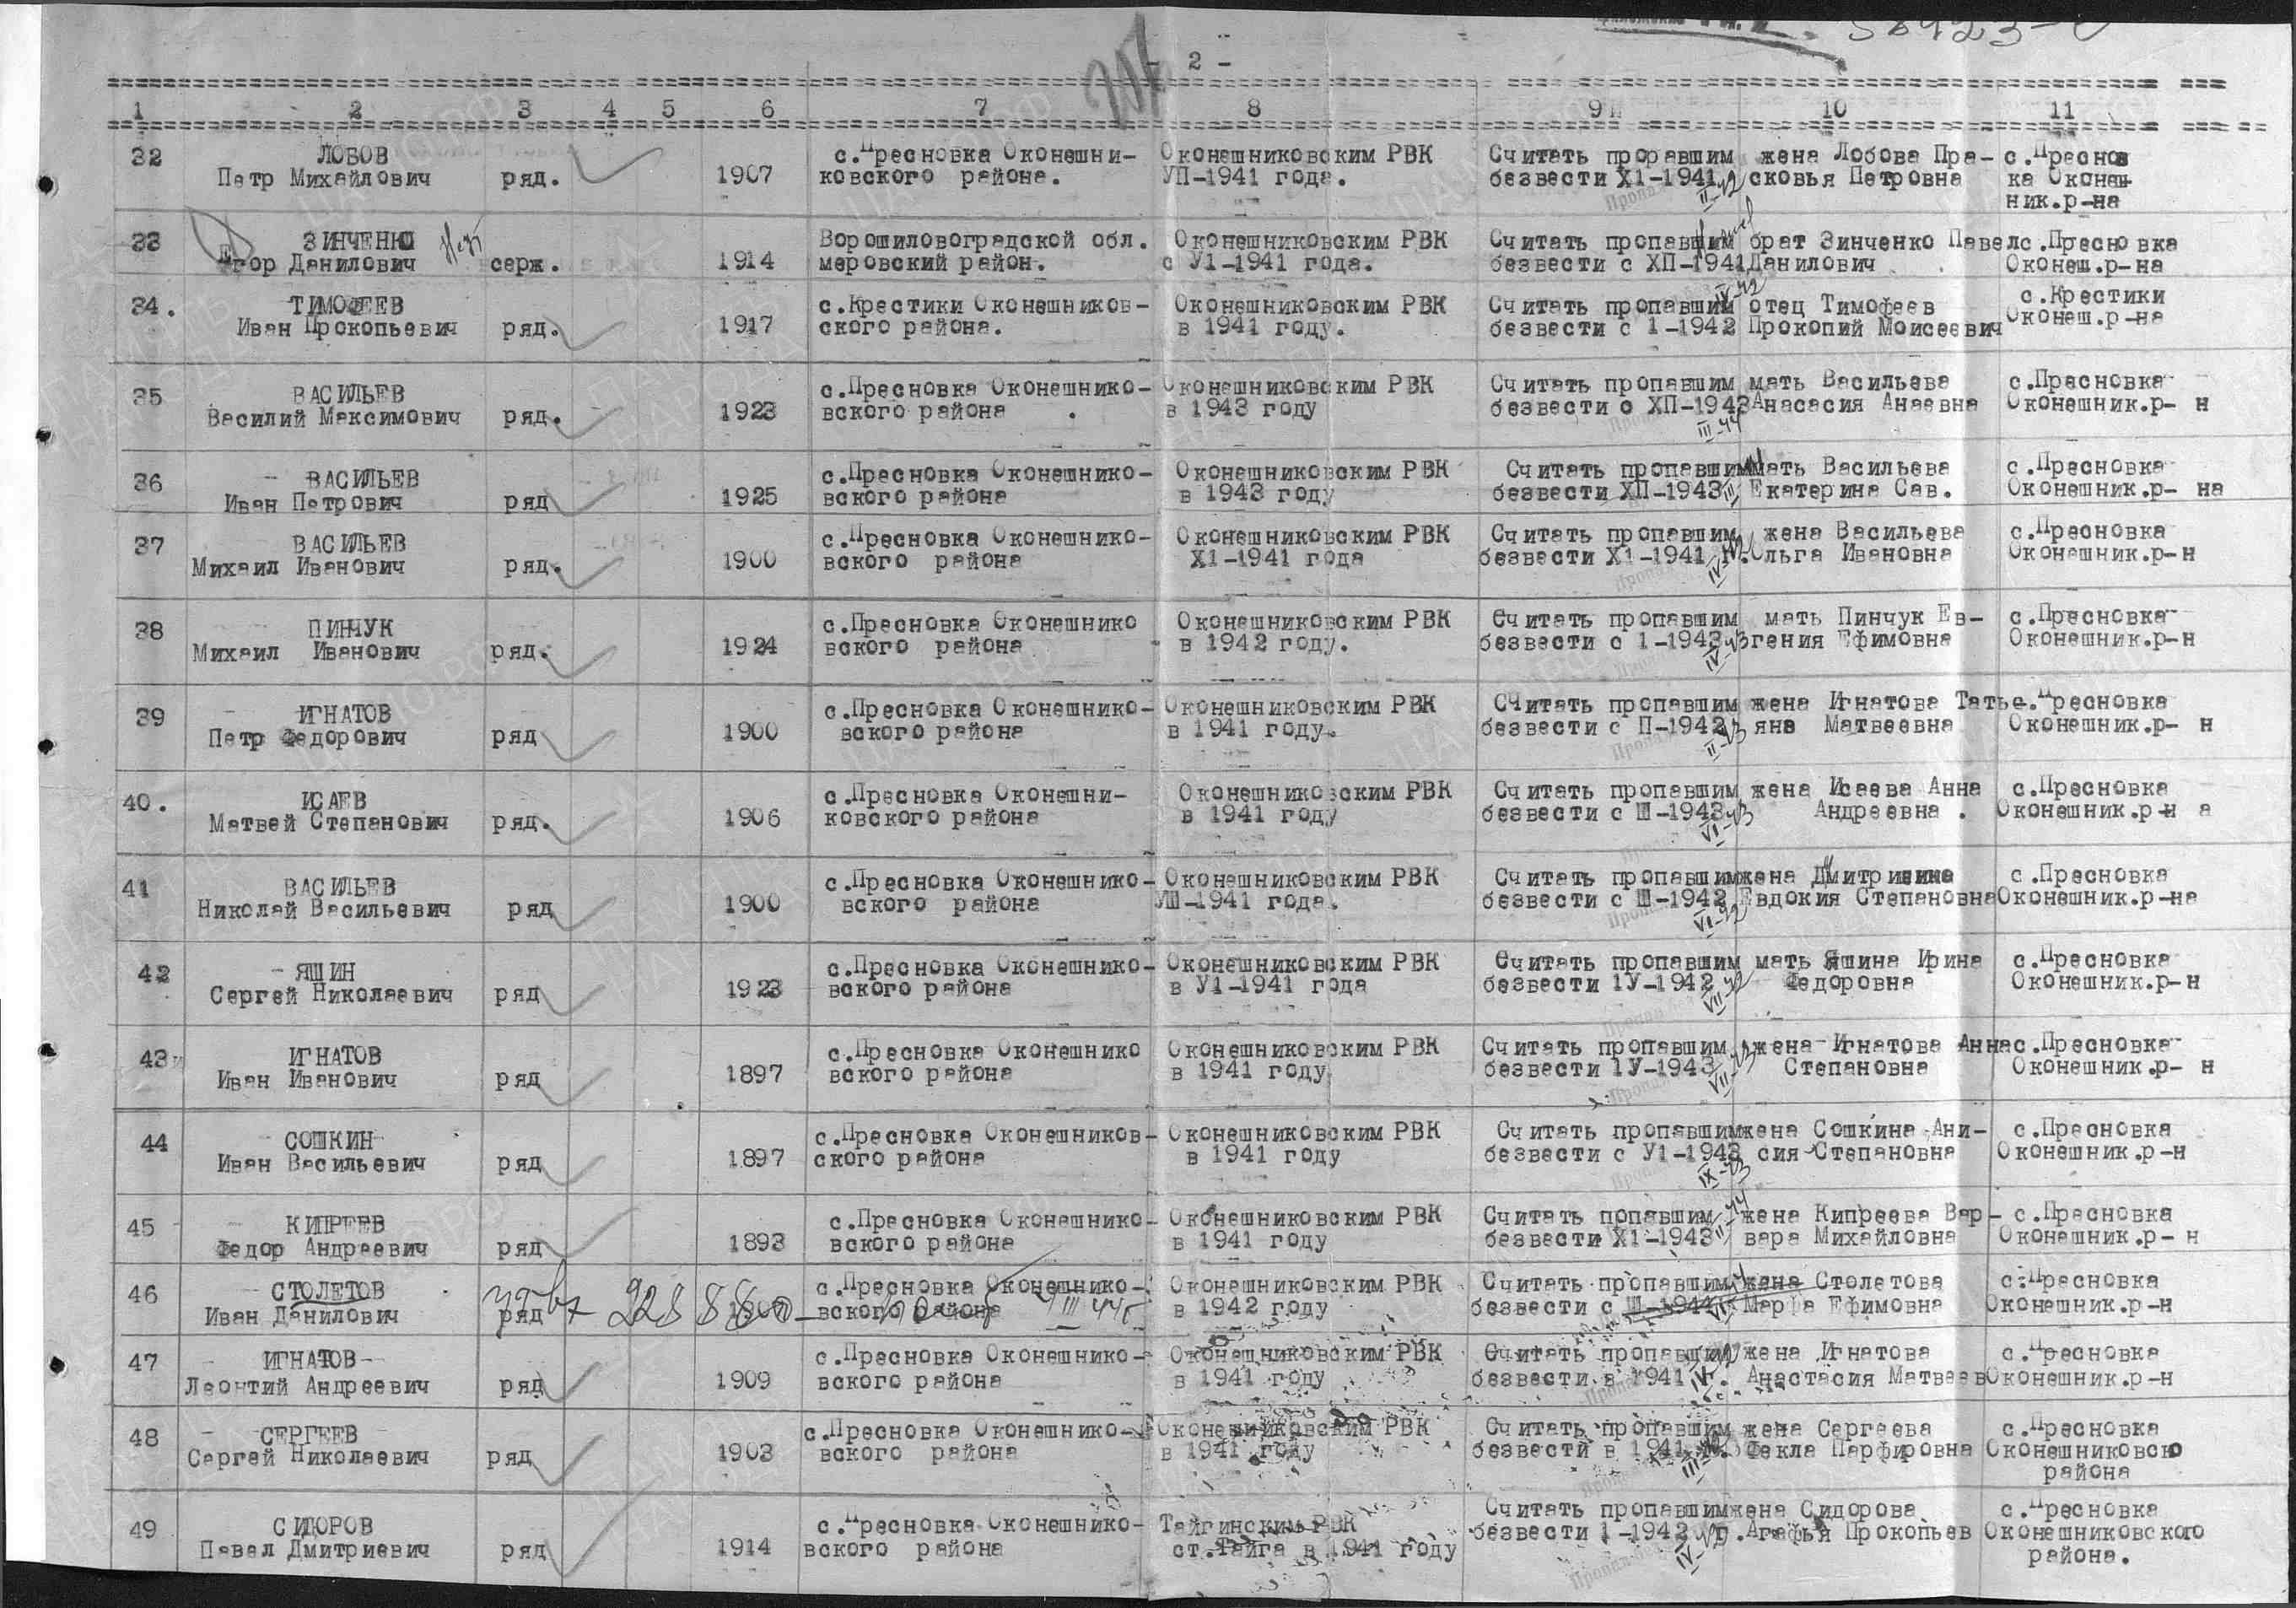 58923-с
- 2 -
1 2 3 4 5 6 7 8 9 10 11
32 ЛОБОВ с.Пресновка Оконешни- Оконешниковским РВК Считать проравшим жена Лобова Пра- с.Преснов
Петр Михайлович ряд. 1907 ковского района. УП-1941 года. безвести Х1-1941 сковья Петровна ка Оконеш
II-42 ник.р-на
33 ЗИНЧЕНКО Ворошиловоградской обл. Оконешниковским РВК Считать пропавшим брат Зинченко Павел с.Пресновка
Егор Данилович серж. 1914 меровский район. с У1-1941 года. безвести с ХП-1941 Данилович Оконеш.р-на
34. ТИМОФЕЕВ с.Крестики Оконешников- Оконешниковским РВК Считать пропавшим отец Тимофеев с.Крестики
Иван Прокопьевич ряд. 1917 ского района. в 1941 году. безвести с 1-1942 Прокопий Моисеевич Оконеш.р-на
IV-42
35 ВАСИЛЬЕВ с.Пресновка Оконешнико- Оконешниковским РВК Считать пропавшим мать Васильева с.Пресновка
Василий Максимович ряд. 1923 вского района . в 1943 году безвести с ХП-1943 Анасасия Анаевна Оконешник.р- н
III-44
36 - ВАСИЛЬЕВ с.Пресновка Оконешнико- Оконешниковским РВК Считать пропавшим мать Васильева с.Пресновка
Иван Петрович ряд 1925 вского района в 1943 году безвести ХП-1943 Екатерина Сав. Оконешник.р- на
37 ВАСИЛЬЕВ с.Пресновка Оконешнико- Оконешниковским РВК Считать пропавшим жена Васильева с.Пресновка
Михаил Иванович ряд. 1900 вского района Х1-1941 года безвести Х1-1941 г. Ольга Ивановна Оконешник.р-н
38 ПИНЧУК с.Пресновка Оконешнико Оконешниковским РВК Считать пропавшим мать Пинчук Ев- с.Пресновка
Михаил Иванович ряд. 1924 вского района - в 1942 году. безвести с 1-1943 гения Ефимовна Оконешник.р-н
IV-43
39 ИГНАТОВ с.Пресновка Оконешнико- Оконешниковским РВК СЧитать пропавшим жена Игнатова Татье.Пресновка
Петр Федорович ряд 1900 вского района в 1941 году. безвести с П-1942 яна Матвеевна Оконешник.р- н
II-43
40. ИСАЕВ с.Пресновка Оконешни- Оконешниковским РВК Считать пропавшим жена Исаева Анна с.Пресновка
Матвей Степанович ряд. 1906 ковского района в 1941 году безвести с Ш-1943 Андреевна . Оконешник.р-н а
VI-43
41 ВАСИЛЬЕВ с.Пресновка Оконешнико- Оконешниковским РВК Считать пропавшим жена с.Пресновка
Николай Васильевич ряд 1900 вского района УШ-1941 года. безвести с Ш-1942 Евдокия Степановна Оконешник.р-на
VI-42
42 - ЯШИН с.Пресновка Оконешнико- Оконешниковским РВК Считать пропавшим мать Яшина Ирина с.Пресновка
Сергей Николаевич ряд 1923 вского района в У1-1941 года безвести 1У-1942 Федоровна Оконешник.р-н
VII-42
43 ИГНАТОВ с.Пресновка Оконешнико Оконешниковским РВК Считать пропавшим жена Игнатова Анна с.Пресновка
Иван Иванович ряд 1897 вского района в 1941 году безвести 1У-1943 Степановна Оконешник.р- н
VII-43
44 СОШКИН с.Пресновка Оконешников- Оконешниковским РВК Считать пропавшим жена Сошкина Ани- с.Пресновка
Иван Васильевич ряд 1897 ского района в 1941 году безвести с У1-1943 сия Степановна Оконешник.р-н
IX-43
45 КИПРЕЕВ с.Пресновка Оконешнико- Оконешниковским РВК Считать попавшим жена Кипреева Вар- с.Пресновка
Федор Андреевич ряд 1893 вского района в 1941 году безвести Х1-1943 вара Михайловна Оконешник.р- н
46 СТОЛЕТОВ с.Пресновка Оконешнико- Оконешниковским РВК Считать пропавшим жена Столетова с.Пресновка
Иван Данилович ряд вского района в 1942 году безвести с Ш-1944 Марфа Ефимовна Оконешник.р-н
47 ИГНАТОВ с.Пресновка Оконешнико- Оконешниковским РВК Считать пропавшим жена Игнатова с.Пресновка
Леонтий Андреевич ряд 1909 вского района в 1941 году безвести в 1941 г. Анастасия Матвеев Оконешник.р-н
48 СЕРГЕЕВ с.Пресновка Оконешнико- Оконешниковским РВК Считать пропавшим жена Сергеева с.Пресновка
Сергей Николаевич ряд 1903 вского района в 1941 году безвести в 1941 Фекла Парфировна Оконешниковско
района
49 СИДОРОВ с.Пресновка Оконешнико- Тайгинским РВК Считать пропавшим жена Сидорова с.Пресновка
Павел Дмитриевич ряд 1914 вского района ст.Тайга в 1941 году безвести 1-1942 г. Агафья Прокопьев Оконешниковского
района.